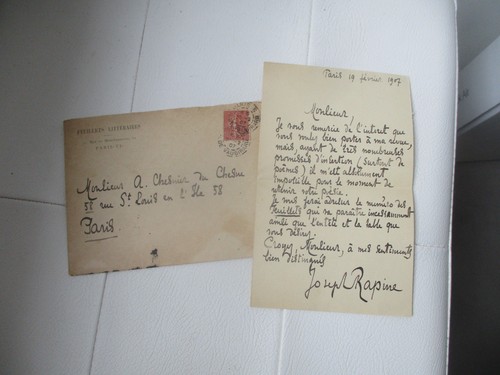 FEUILLES LITTÉRAIRES
PARIS
Monsieur A. Chesnier du Chesne
58 rue St Louis en l'Ile 58
Paris
Paris 19 février 1907
Monsieur,
Je vous remercie de l'intérêt que
vous voulez bien porter à ma revue,
mais, ayant de très nombreuses
promesses d'insertion (surtout de
poèmes) il m'est absolument
impossible pour le moment de
retenir votre prose.
Je vous ferai adresser le numéro des
Feuillets qui va paraître incessamment
ainsi que l'entête et la table que
vous désirez.
Croyez, Monsieur, à mes sentiments
bien distingués
Joseph Rapine